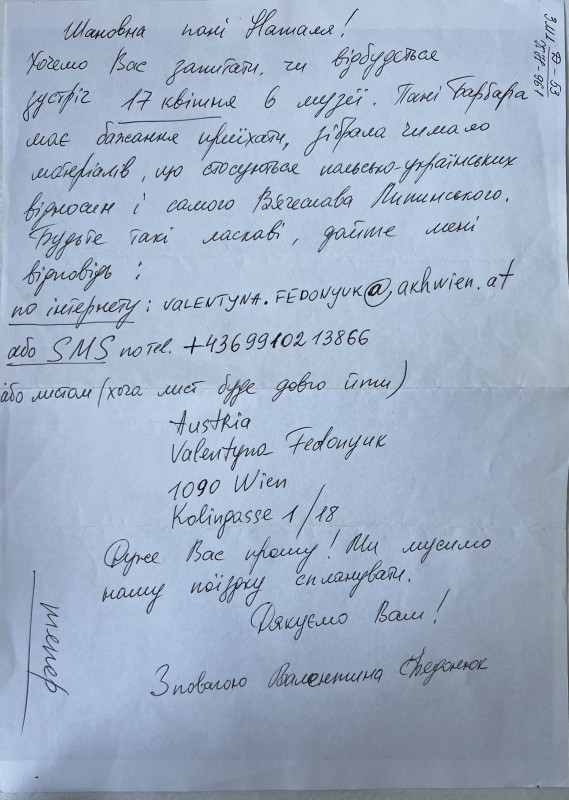 Шановна пані Наталя!
Хочемо Вас запитати чи відбудеться
зустріч 17 квітня в музеї. Пані Барбара
має бажання приїхати, зібрала чимало
матеріалів, що стосуються польсько-українських
відносин і самого Вячеслава Липинського.
Будьте такі ласкаві, дайте мені
відповідь:
по інтернету: VALENTYNA.FEDONYUK@akhwien.at
або SMS по tel. +436991021 3866
або листом (хоча лист буде довго йти)
Austria
Valentyna Fedonyuk
1090 Wien
Kolingasse 1/18
Дуже Вас прошу! Ми мусимо
нашу поїздку спланувати.
Дякуємо Вам!
З повагою Валентина Федонюк
тепер